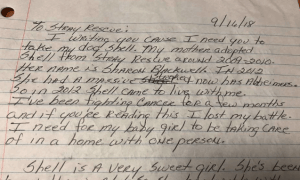 9/16/18
To Stray Rescue:
I writing you cause I need you to
take my dog Shell. My mother adopted
Shell from Stray Rescue around 2009-2010.
Her name is Sharon Blackwell. In 2012
She had a massive now has Alzheimers.
So in 2012 Shell came to live with me.
I've been fighting cancer for a few months
and if you're reading this I lost my battle.
I need for my baby girl to be taking care
of in a home with one person.
Shell is a very sweet girl. She's been